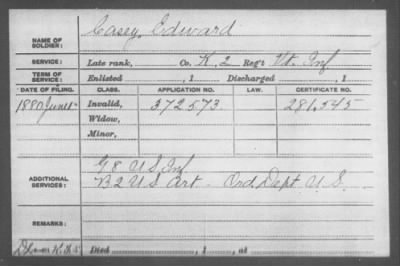 NAME OF SOLDIER: Casey, Edward
SERVICE: Late rank, Co. K, 2 Reg't Vt. Inf
TERM OF SERVICE: Enlisted , 1 Discharged , 1
DATE OF FILING. CLASS. APPLICATION NO. LAW. CERTIFICATE NO.
1880 June Invalid, 372573 281,545
Widow,
Minor,
ADDITIONAL SERVICES: G 8 U S Inf
B 2 U S Art. Ord Dept. U.S.
REMARKS:
Died , 1 , at